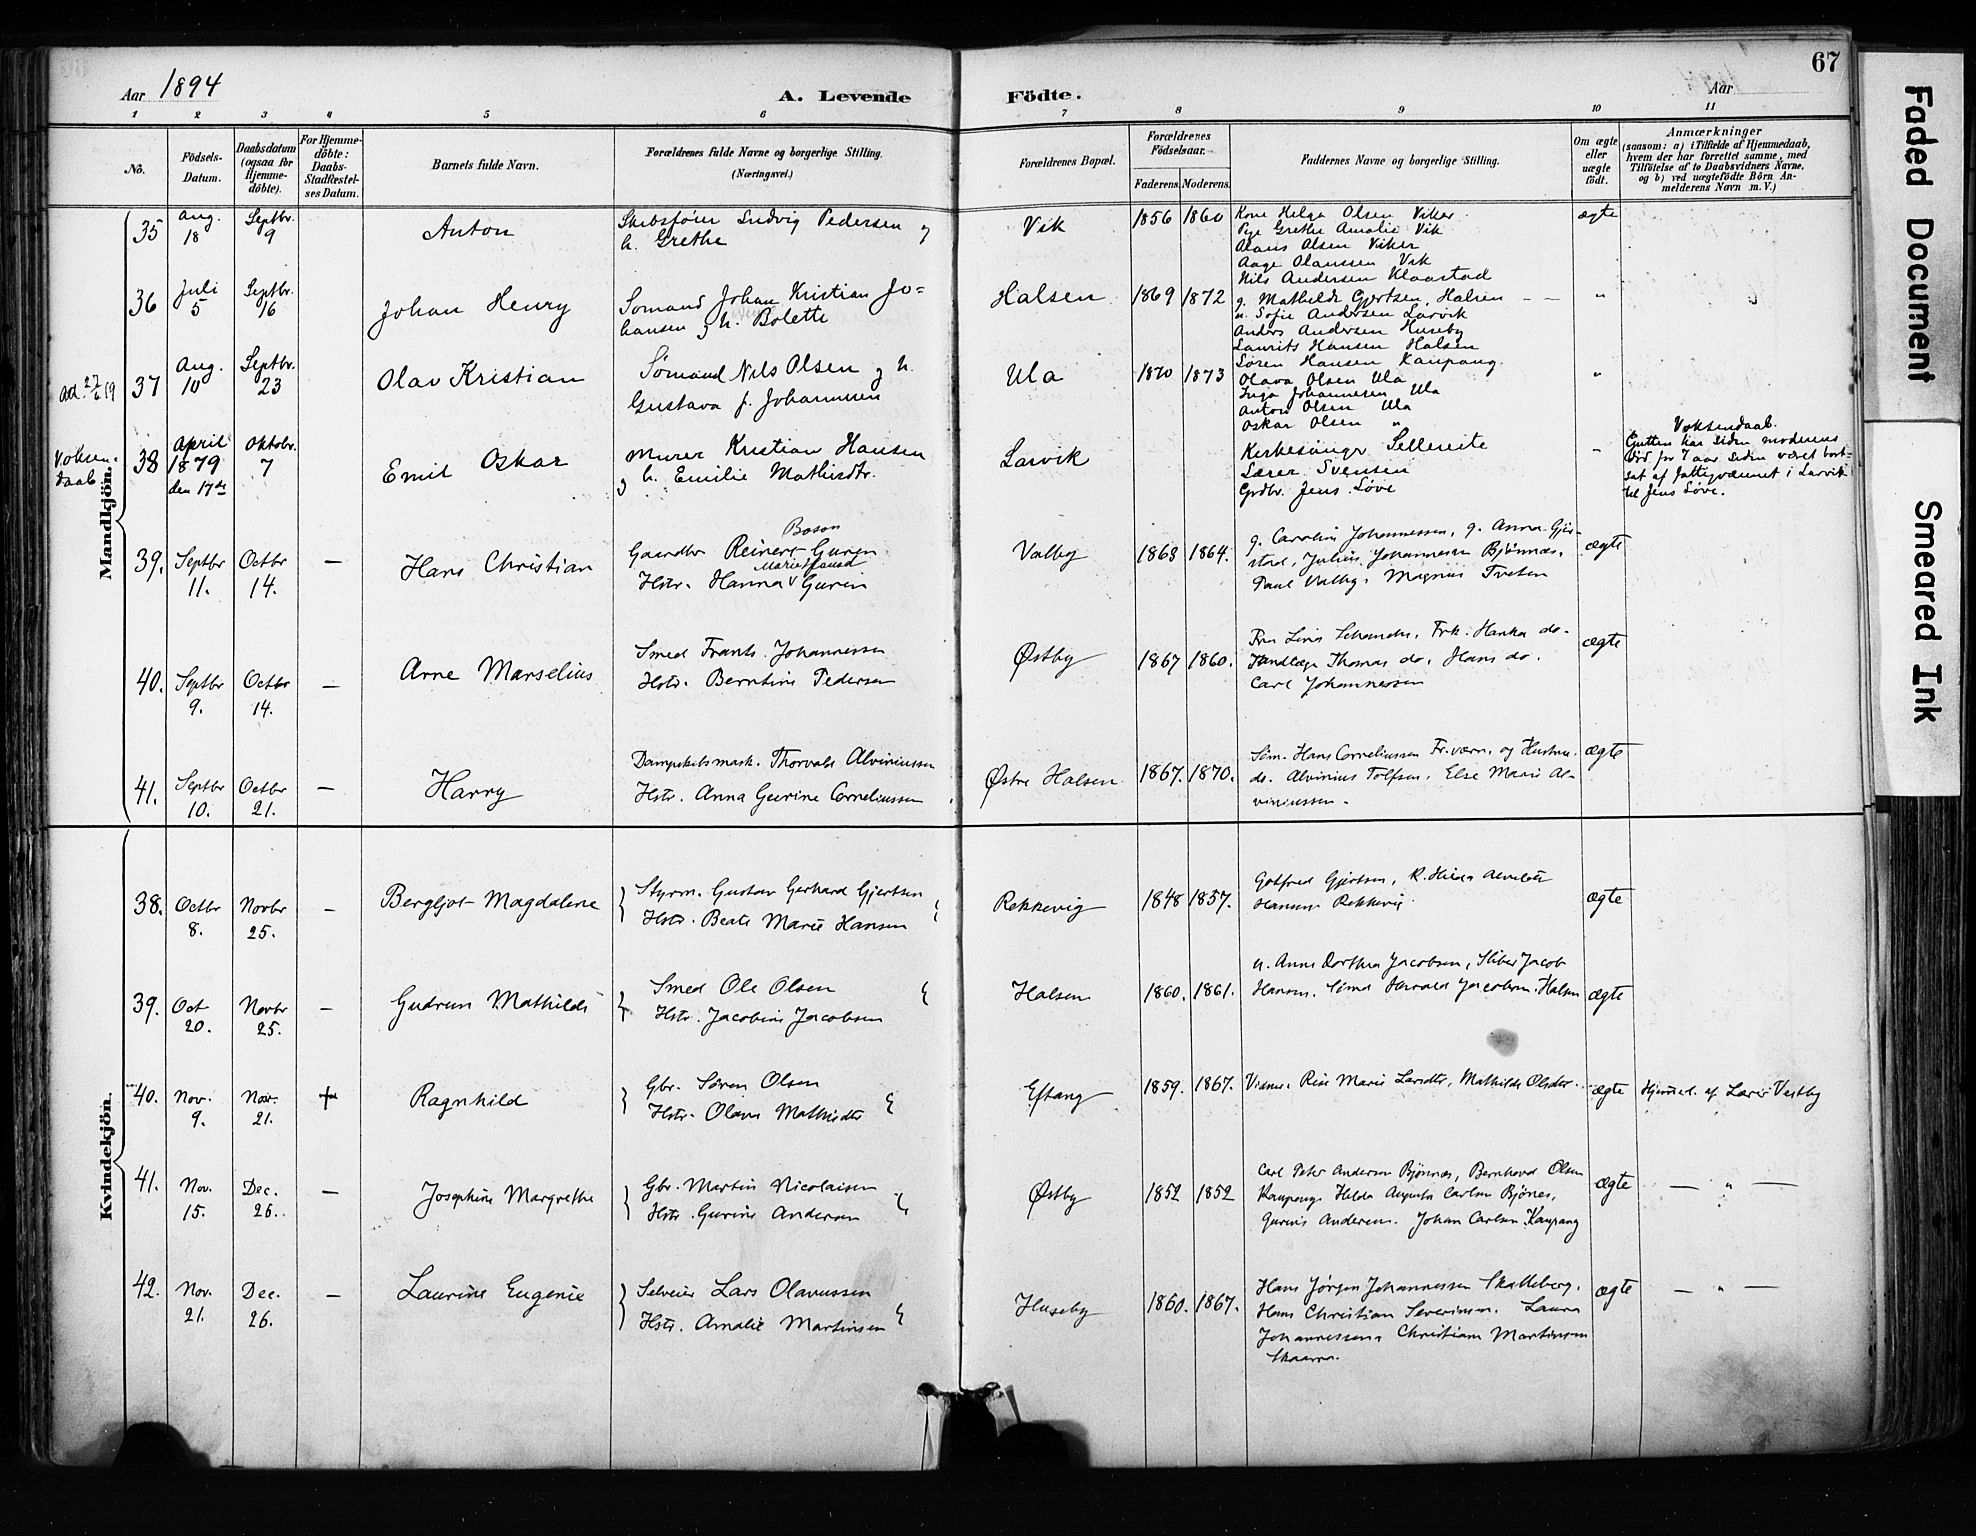 67
Aar 1894
A. Levende Födte.
Aar
1 2 3 4 5 6 7 8 9 10 11
No.
Födsels-Datum.
Daabsdatum (ogsaa for Hjemme-döbte).
For Hjemme-döbte: Daabs-Stadfæstel-ses Datum.
Barnets fulde Navn.
Forældrenes fulde Navne og borgerlige Stilling.
(Næringsvei.)
Forældrenes Bopæl.
Forældrenes Födselsaar.
Faderens. Moderens.
Faddernes Navne og borgerlige Stilling.
Om ægte eller uægte födt.
Anmærkninger
(saasom: a) i Tilfælde af Hjemmedaab,
hvem der har forrettet samme, med
Tilföielse af to Daabsvidners Navne.
og b) ved uægtefödte Börn An-
melderens Navn m. V.)
Mandkjön.
35 Aug. 18 Septbr. 9
Anton
Skibsfører Ludvig Pedersen og
h. Grethe
Vik 1856 1860
Kone Helga Olsen Viker
Pige Grethe Amalie Vik
Olaus Olsen Viker
Aage Olaussen Vik
Nils Andersen Klaastad
ægte
36 Juli 5 Septbr. 16
Johan Henry
Sømand Johan Kristian Jo-
hansen og h. Bolette
Halsen 1869 1872
g. Mathilde Gjertsen, Halsen
u. Sofie Andersen Larvik
Anders Andersen Huseby
Laurits Hansen Halsen
"
37 Aug. 10 Septbr. 23
Olav Kristian
Sømand Nils Olsen og h.
Gustava f. Johannesen
Ula 1870 1873
Søren Hansen Kaupang
Olava Olsen Ula
Inga Johannesen Ula
Anton Olsen Ula
Oskar Olsen "
"
Voksen-
daab
38 April 1879 den 17de Oktobr. 7
Emil Oskar
Murer Kristian Hansen
og h. Emilie Mathisdtr.
Larvik
Kirkesanger Sellereite
Lærer Svensen
Grdbr. Jens Løve
Voksendaab.
Gutten har siden moderens
død for 7 aar siden været bort-
sat af fattigvæsenet i Larvik
til Jens Løve.
39. Septbr 11. Octbr 14. —
Hans Christian
Boson
Gaardbr Reinert Guren
Hstr. Hanna Guren
Valby 1863 1864.
g. Caroline Johannessen, g. Anna Gjer-
stad, Julius Johannesen Bjønnes,
Paul Valby, Magnus Tveten
ægte
40. Septbr 9. Octbr 14. —
Arne Marselius
Smed Frants Johannessen
Hstr. Berntine Pedersen
Østby 1867 1860.
Thomas do. Hans do.
Carl Johannessen
ægte
41. Septbr 10. Octbr 21. —
Harry
Thorvald Alviniussen
Hstr. Anna Gurine Corneliussen
Østre Halsen 1867. 1870.
Søm. Hans Corneliussen Fr.værn, og Hustru
do. Alvinius Tolfsen, Else Marie Al-
viniussen.
ægte
Kvindekjön.
38. Octbr 8. Novbr 25. —
Bergljot Magdalene
Styrm. Gustav Gerhard Gjertsen
Hstr. Beate Marie Hansen
Rekkevig 1848 1857.
Gotfred Gjertsen,
Hansen Rekkevig
ægte
39. Oct 20. Novbr 25. —
Gudrun Mathilde
Smed Ole Olsen
Hstr. Jacobine Jacobsen
Halsen 1860. 1861.
u. Anne Dorthea Jacobsen, Jacob
Hansen, Sømd Harald Jacobsen, Halsen
ægte
40. Nov. 9. Nov. 21. +
Ragnhild
Gbr. Søren Olsen
Hstr. Olava Mathisdtr
Eftang 1859. 1867.
Marie Larsdtr, Mathilde Olsdtr.
ægte
Hjemmed. af Lærer Vestby
41. Nov. 15. Dec. 26. —
Josephine Margrethe
Gbr. Martin Nicolaisen
Hstr. Gurine Andersen
Østby 1852 1852
Carl Peter Andersen Bjønnes, Bernhard Olsen
Kaupang, Hilda Augusta Carlsen Bjønes,
Gurine Andersen. Johan Carlsen Kaupang
ægte — " —
42. Nov. 21. Dec. 26. —
Laurine Eugenie
Selveier Lars Olavussen
Hstr. Amalie Martinsen
Huseby 1860. 1867.
Hans Jørgen Johannessen Skalleberg,
Hans Christian Severinsen. Laura
Johannessen, Christian Martinsen
ægte — " —
Faded Document
Smeared Ink